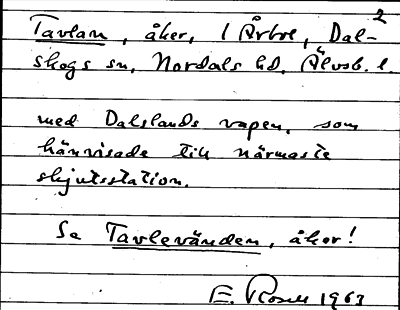 2
Tavlan, åker, 1 Årbol, Dal-
skogs sn, Nordals hd, Älvsb. l.
med Dalslands vapen, som
hänvisade till närmaste
skjutsstation.
Se Tavlevänden, åker!
E. Rosell 1963